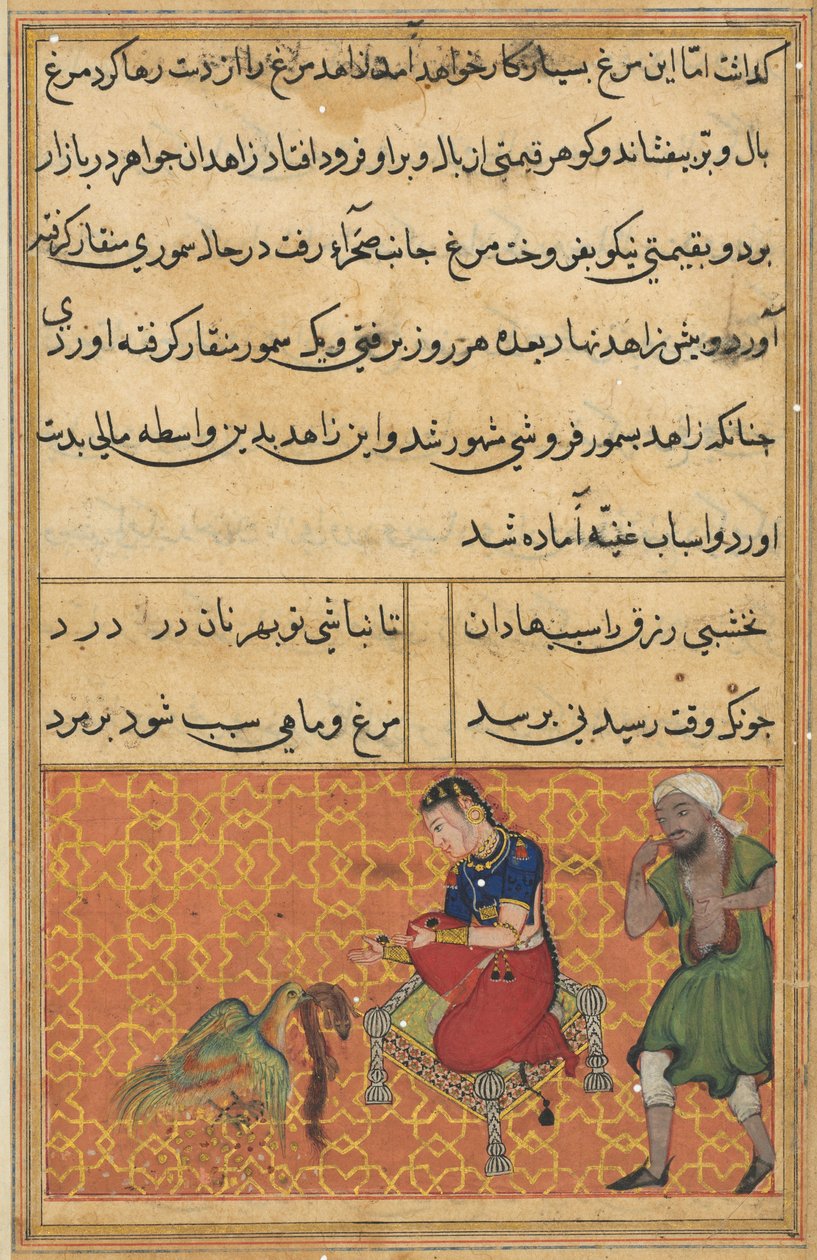 کذاشت امّا این مرغ بسیار کار خواهد آمد زاهد مرغ را از دست رها کرد مرغ
بال و بّر بیفشاند و کوهر قیمتی از بال و بر او فرود افتاد زاهد ان جواهر در بازار
بود و بقیمتی نیکو بفروخت مرغ جانب صَحرآء رفت در حال سموری منقار کرفته
آورد و بیش زاهد نهاد بعده هر روز برفتی و یک سمور منقار کرفته اوردی
جنانکه زاهد بسمور فروشی مشهور شد و این زاهد بدین واسطه مالی بدست
اورد و اسباب غنیّه آماده شد
نخشبی رزق را سببها دان تا نباشی تو بهر نان در درد
جونکه وقت رسیدنی برسد مرغ و ماهی سبب شود بر مرد